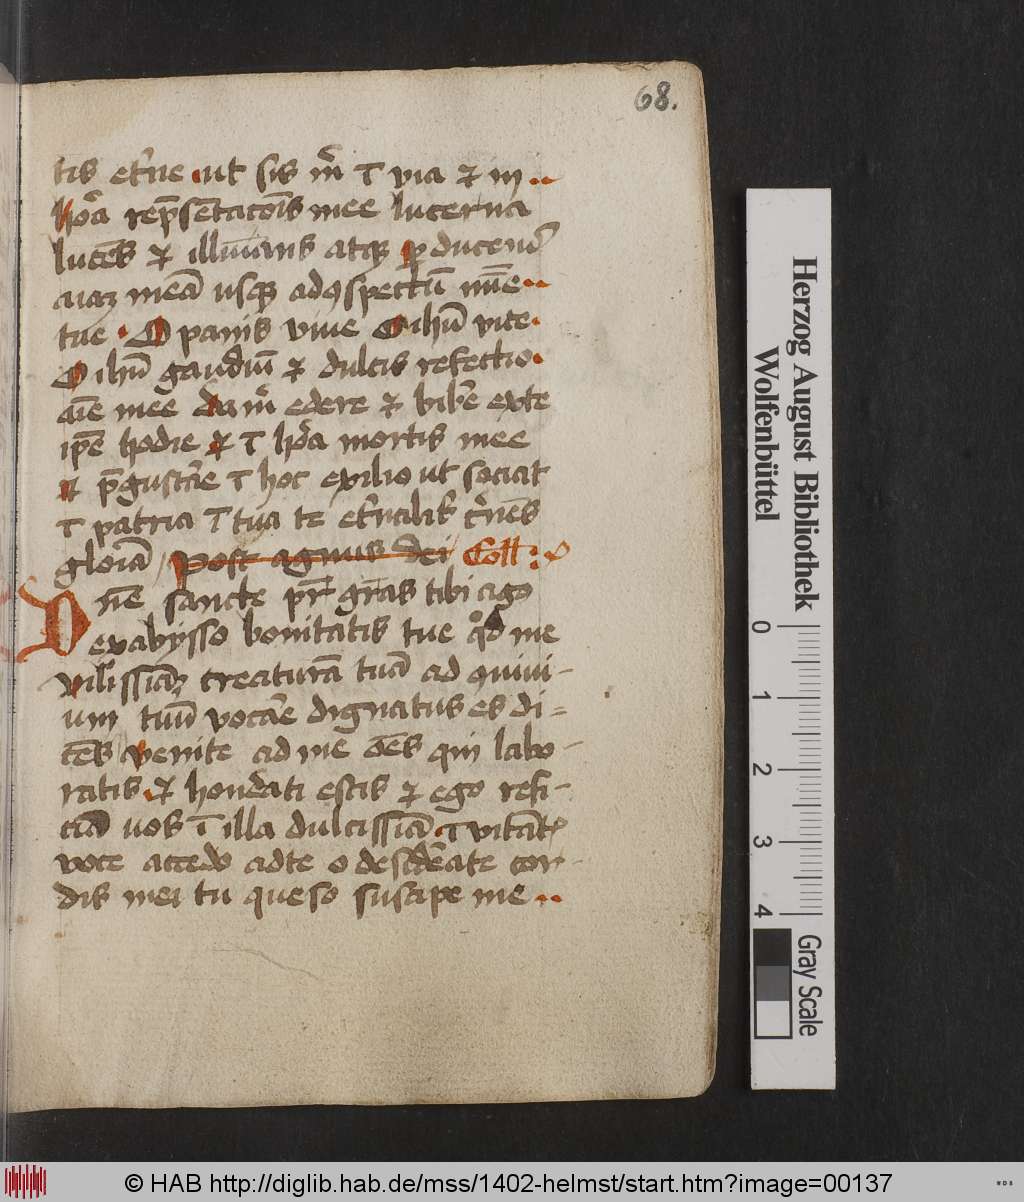 68.
tis etne ut sis m i via et in
hora repsentacois mee lucerna
luces et illuians atque perducens
aiaz mea usque ad 9spectu
tue O panis vive O ihu vite
O ihu gaudiu et dulcis refectio
aie mee da m edere et bibe
ipe hodie et i hora mortis mee
et pgustare i hoc exilio ut sociat
i patria i tua
gloria Post agnus dei Coll
Dne sancte pr gras tibi ago
ex abysso bonitatis tue qd me
vilissiaz creatura tua ad 9vivi-
um tuu vocare dignatus es di=
ces venite ad me oes qui labo-
ratis et honerati estis et ego refi-
cia vos i illa dulcissia
voce accedo ad te o desiderate cor-
dis mei tu queso suscipe me
Herzog August Bibliothek
Wolfenbüttel
0 1 2 3 4
Gray Scale
© HAB http://diglib.hab.de/mss/1402-helmst/start.htm?image=00137